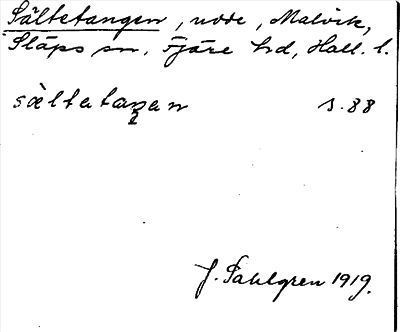 Sältetangen, udde, Malvik,
Släps sn, Fjäre hd, Hall. l.
sæltetaŋen s. 88
J. Sahlgren 1919.